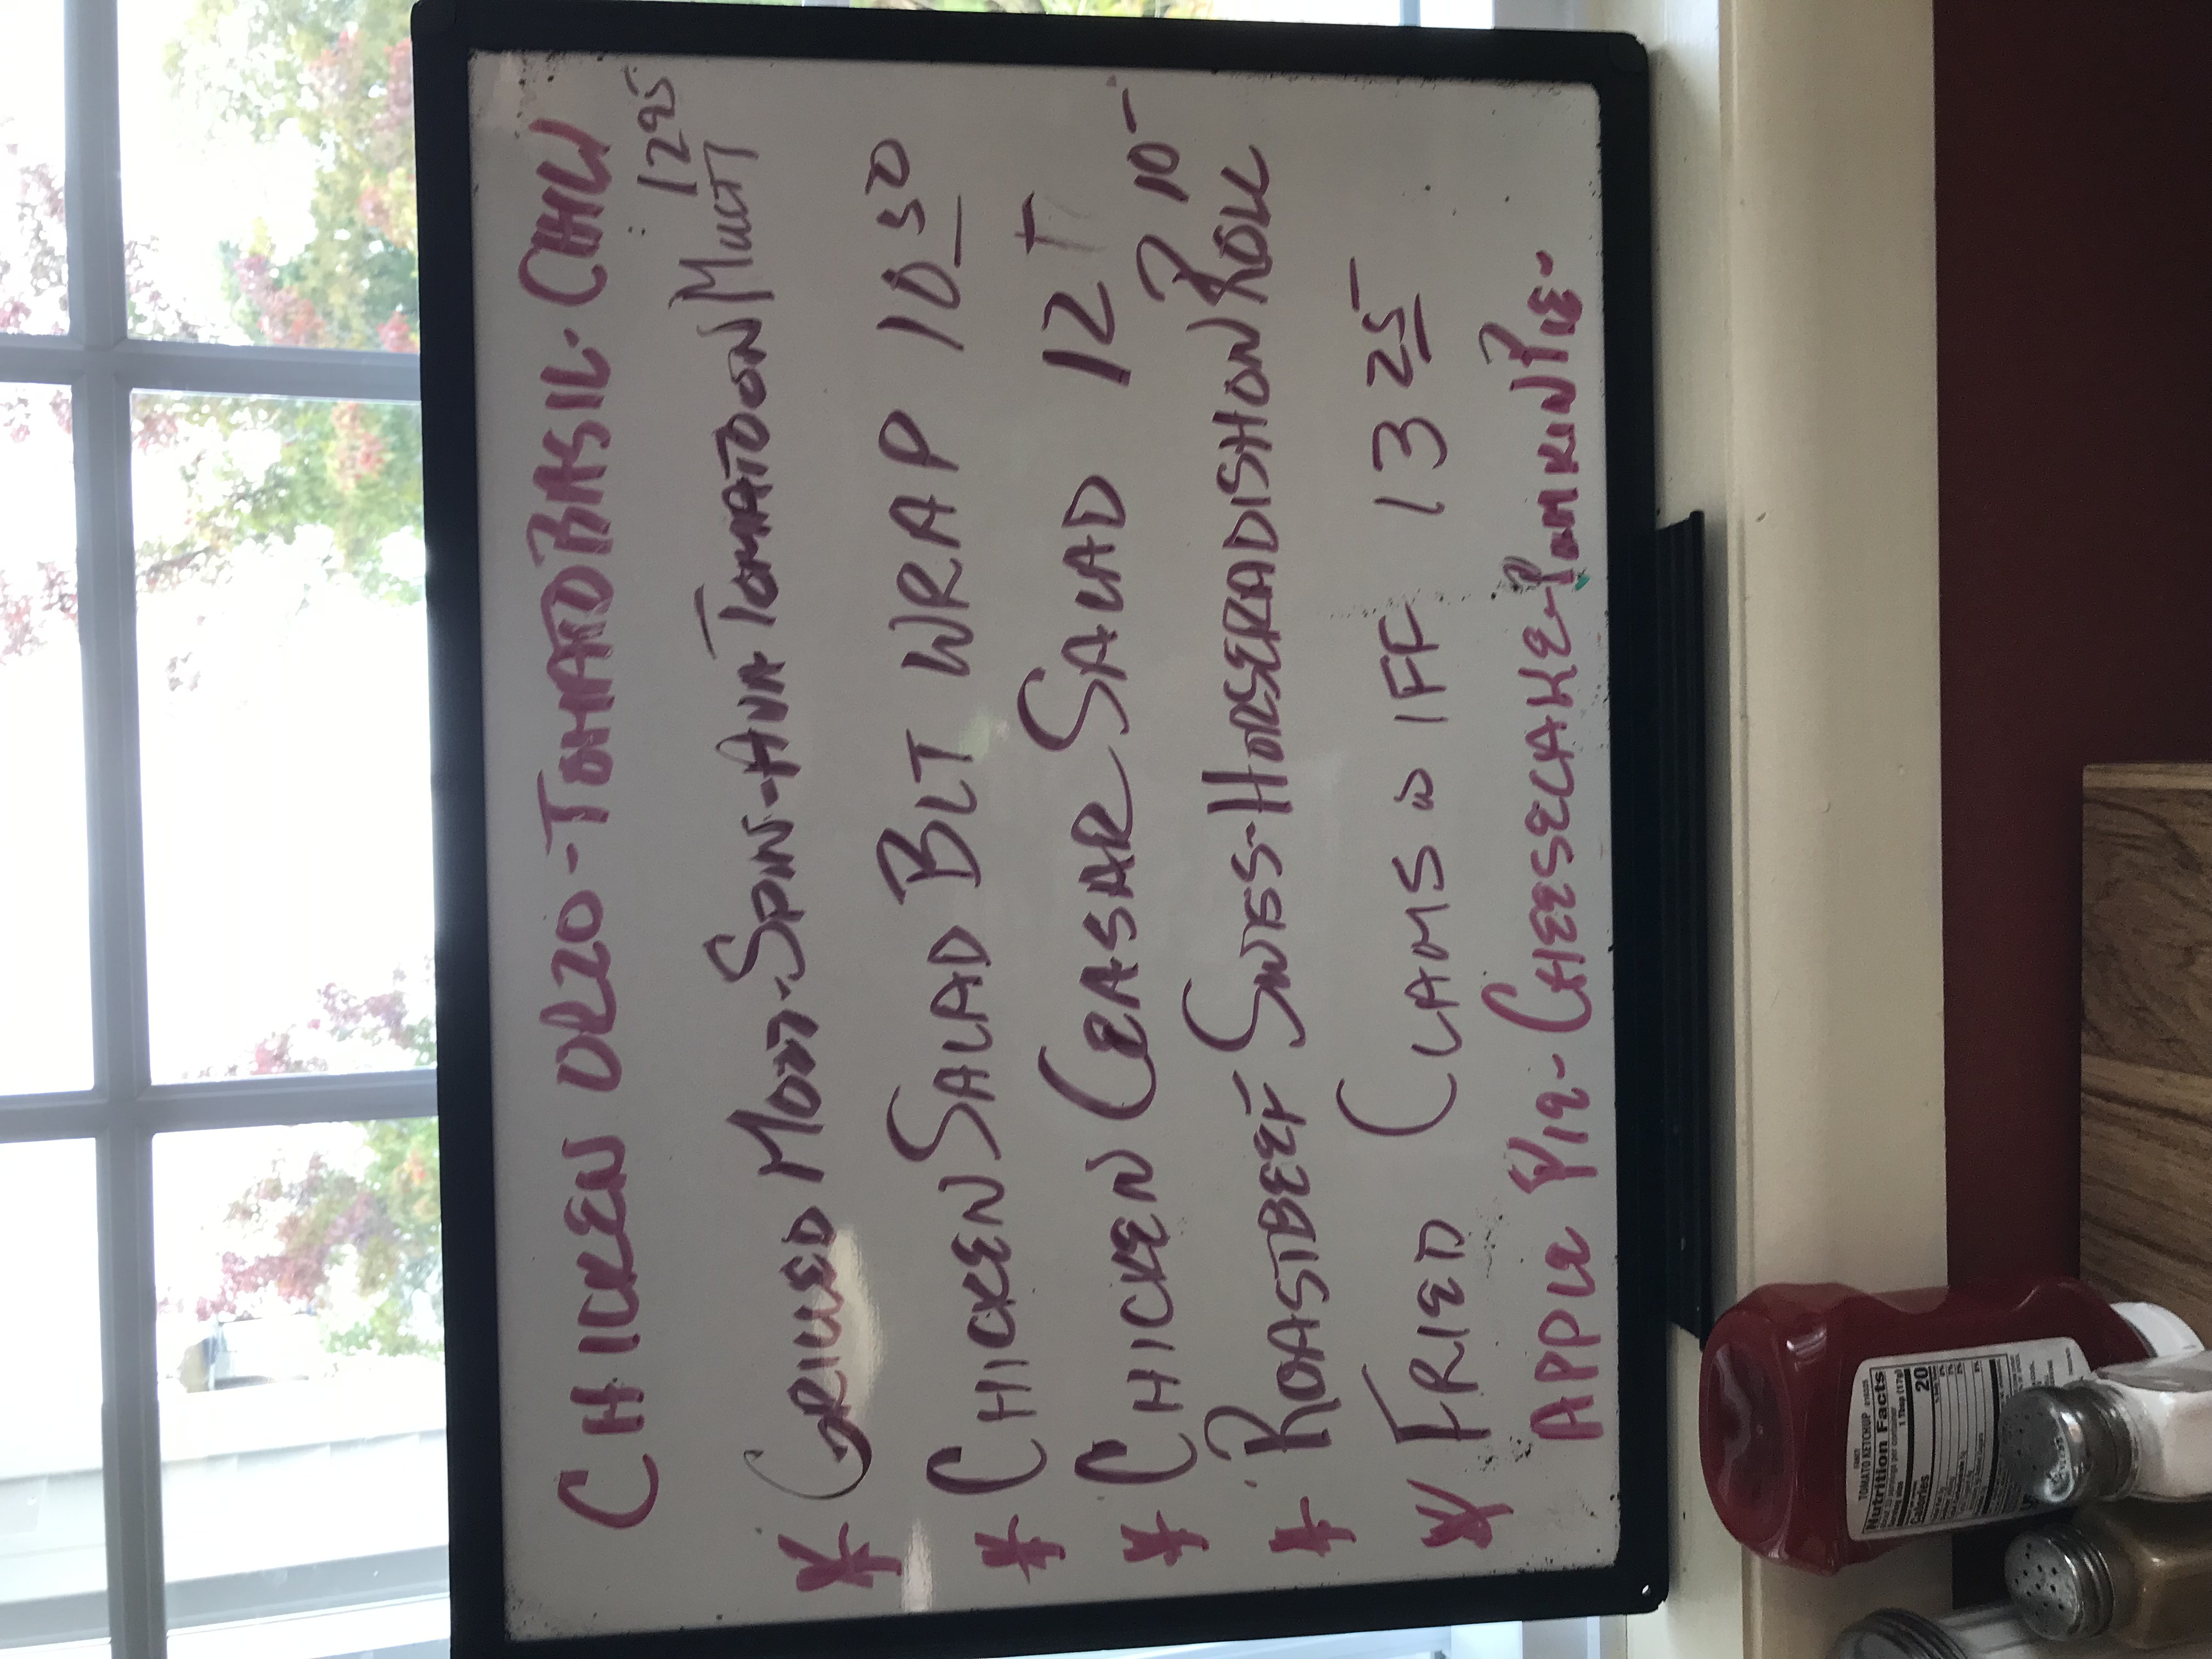 CHICKEN ORZO - TOMATO BASIL - CHILI
12 95
* GRILLED MOZZ - SPIN - AVA TOMATO ON MULTI
* CHICKEN SALAD BLT WRAP 10 50
* CHICKEN CEASAR SALAD 12
10 -
* ROASTBEEF SWISS - HORSERADISH ON P ROLL
* FRIED CLAMS W/FF 13 25
APPLE PIE - CHEESECAKE - PUMKIN PIE -
FANCY
TOMATO KETCHUP
Nutrition Facts
1 Tbsp (17g)
Calories 20